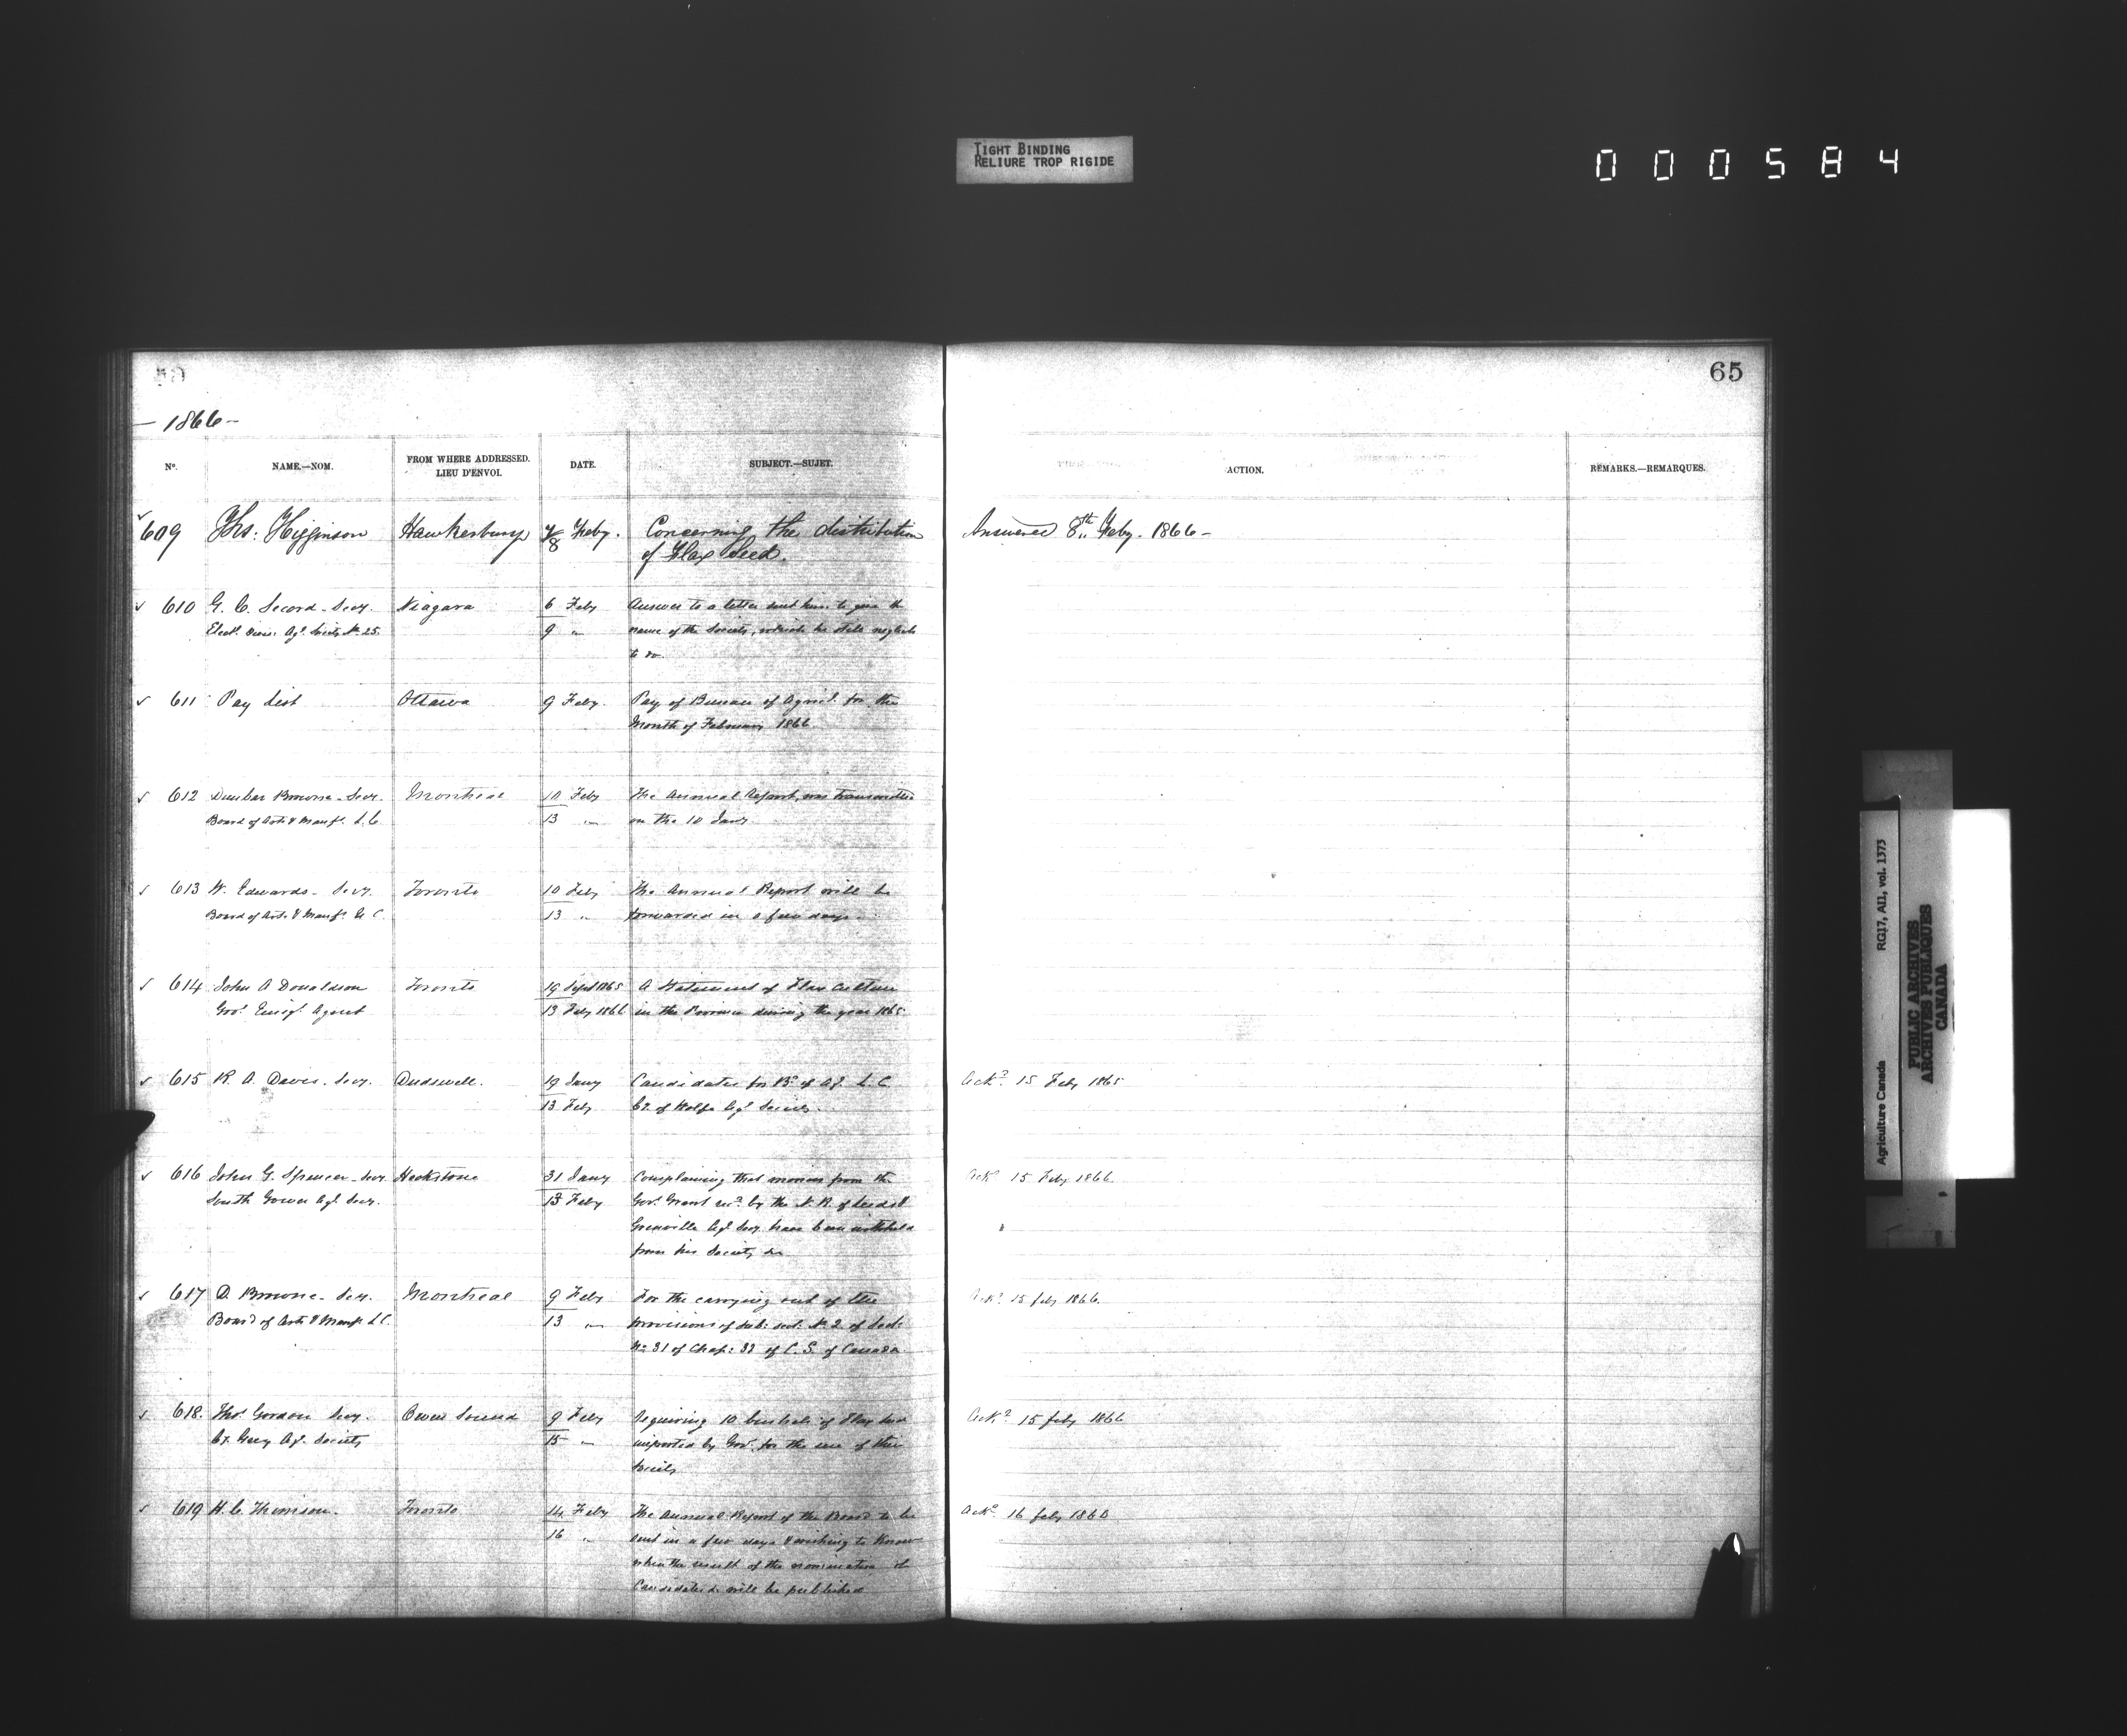 TIGHT BINDING
RELIURE TROP RIGIDE
000584
65
— 1866 —
No. NAME.—NOM. FROM WHERE ADDRESSED. LIEU D'ENVOI. DATE. SUBJECT.—SUJET. ACTION. REMARKS.—REMARQUES.
609 Ths: Higginson Hawkesbury 7/8 Feby. Concerning the distribution Answered 8th Feby. 1866 —
of Flax Seed.
610 G. C. Secord - Secy. Niagara 6 Feby Answer to a letter sent him to give the
Elect. Divis. Agl. Society No 25. 9 " name of the Society, which he still neglects
to do.
611 Pay List Ottawa 9 Feby. Pay of Bureau of Agricl. for the
Month of February 1866.
612 Dunbar Browne - Secy. Montreal 10 Feby The Annual Report, was transmitted
Board of Arts & Manufs. L. C. 13 " on the 10 Jany.
613 W. Edwards - Secy. Toronto 10 Feby The Annual Report will be
Board of Arts & Manufs. U. C. 13 " forwarded in a few days.
614 John A Donaldson Toronto 19 Sept 1865 A Statement of Flax Culture
Govt. Emigt. Agent 13 Feby 1866 in the Province during the year 1865
615 R. A. Davis. Secy. Dudswell. 19 Jany Candidates for Bd. of Ag. L. C. Ackd. 15 Feby 1865
13 Feby Co. of Wolfe Agl. Society.
616 John G. Spencer - Secy Heckstone 31 Jany Complaining that monies from the Ackd. 15 Feby 1866
South Gower Agl. Socy. 13 Feby Govt. Grant recd. by the N. R. of Leeds &
Grenville Agl. Socy. have been withheld
from his Society &c
617 D. Browne - Secy. Montreal 9 Feby For the carrying out of the Ackd. 15 feby 1866.
Board of Arts & Manufs L C. 13 " provisions of sub: sect. No 2. of Sect:
No 31 of Chap: 32 of C. S. of Canada
618. Thos. Gordon Secy. Owen Sound 9 Feby Requiring 10 bushels of Flax seed Ackd. 15 feby 1866
Co. Grey Agl. Society 15 " imported by Govt. for the use of their
Society
619 H. C. Thomson. Toronto 14 Feby The Annual Report of the Board to be Ackd. 16 feby 1866
16 " sent in a few days & wishing to know
when the result of the nomination of
Candidates &c will be published
Agriculture Canada RG17, AI1, vol. 1373
PUBLIC ARCHIVES
ARCHIVES PUBLIQUES
CANADA